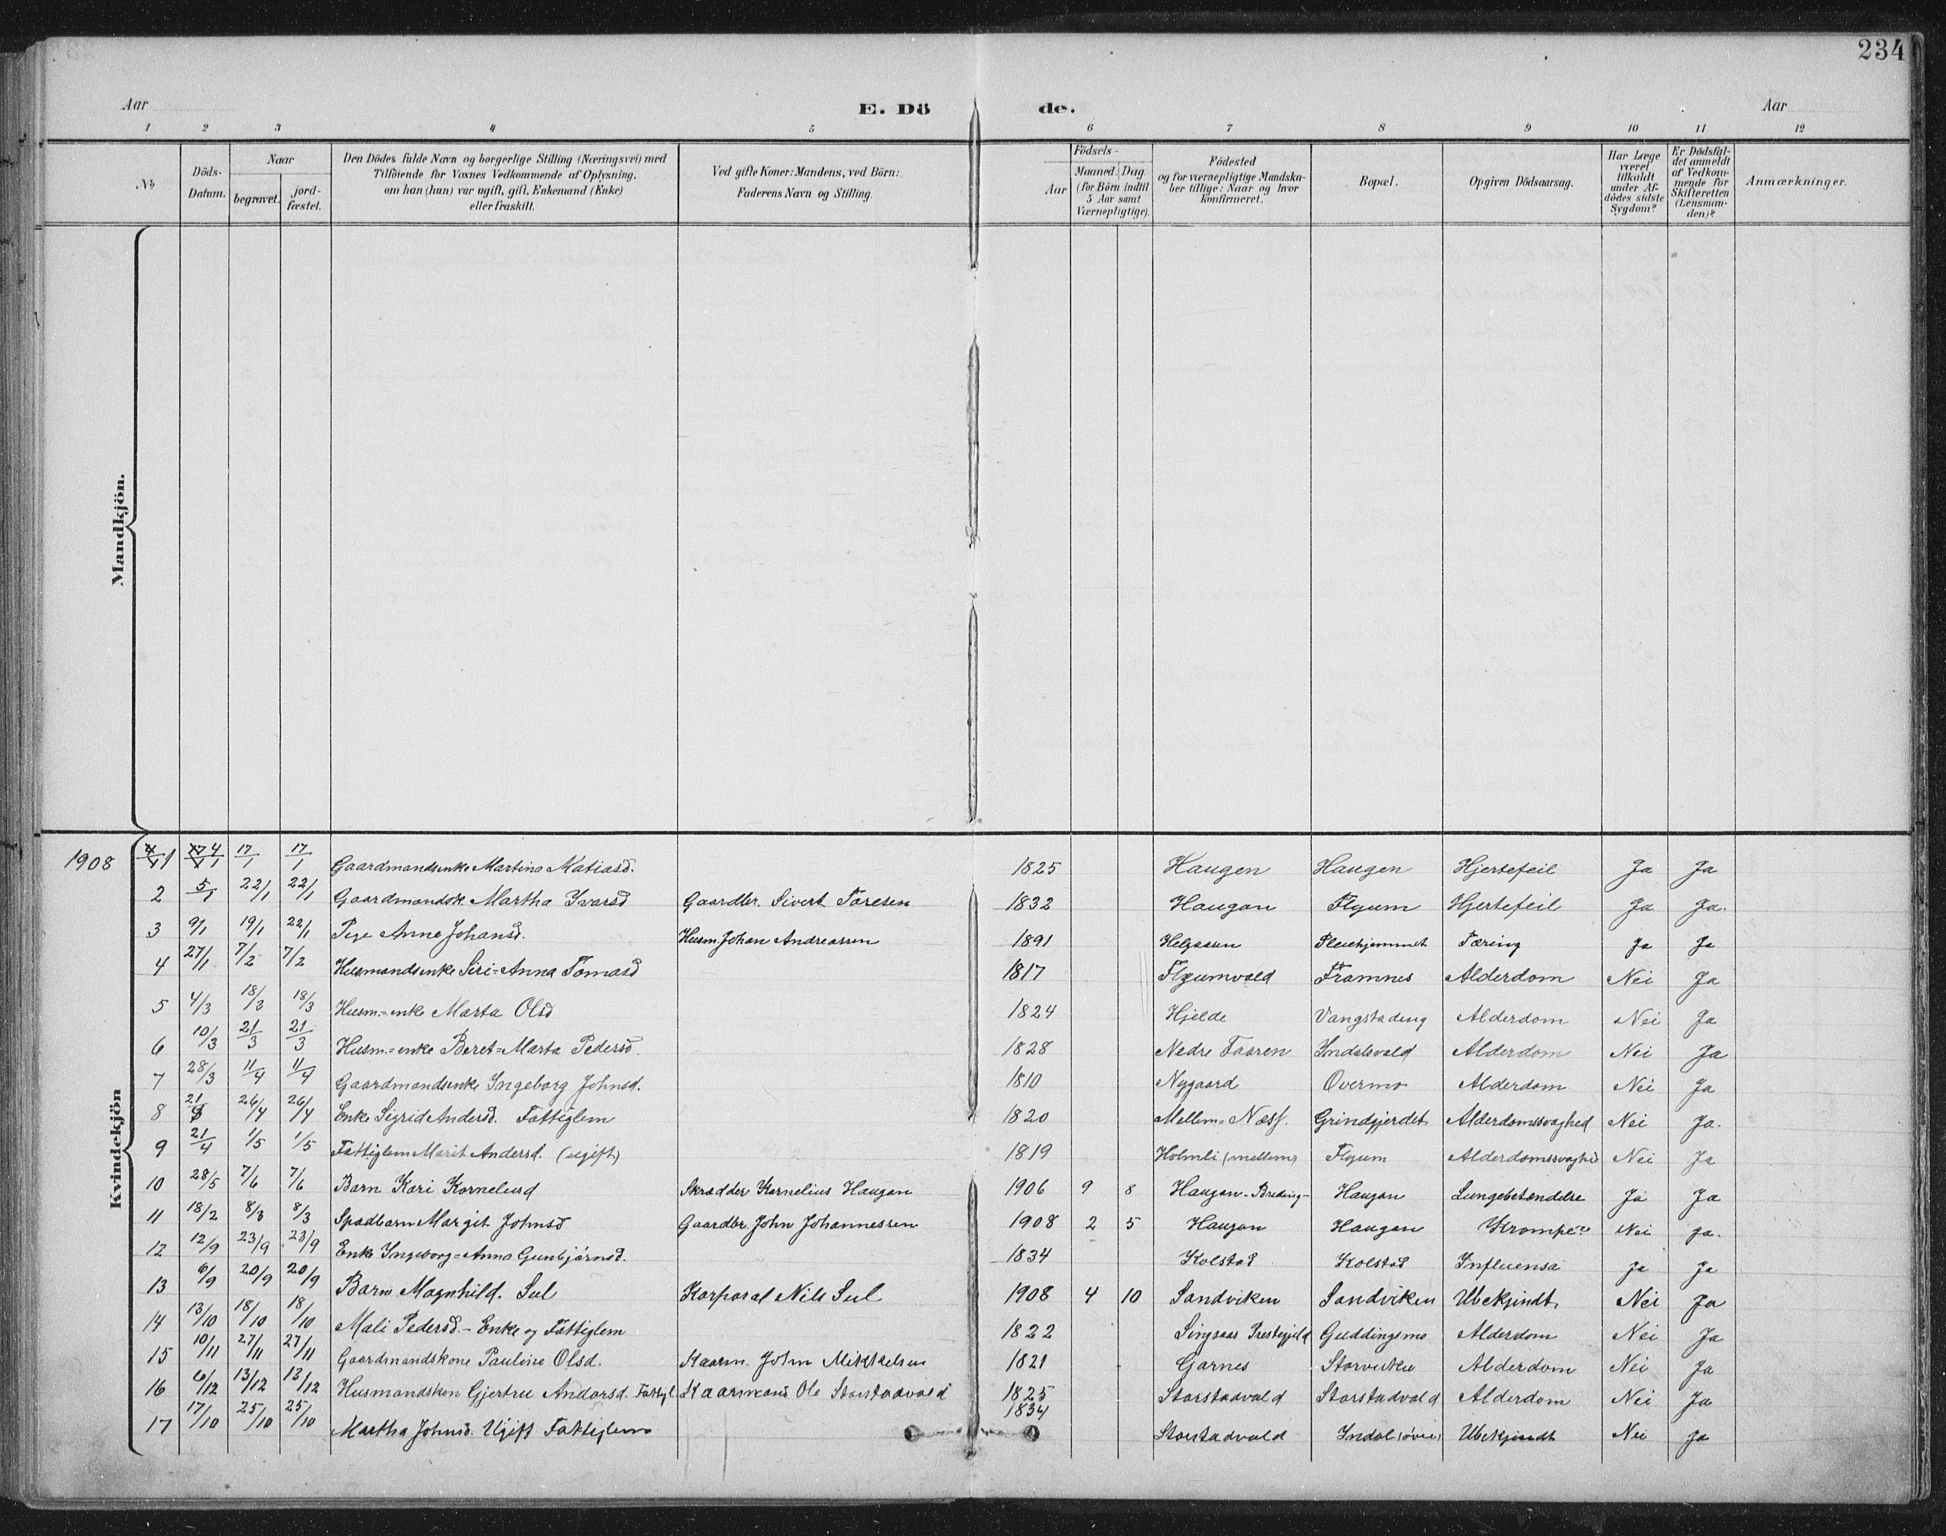 234
Aar E. Dö de. Aar
1 2 3 4 5 6 7 8 9 10 11 12
No
Döds-Datum.
Naar
begravet.
jord-fæstet.
Den Dödes fulde Navn og borgerlige Stilling (Næringsvei) med
Tilföiende for Voxnes Vedkommende af Oplysning,
om han (hun) var ugift, gift, Enkemand (Enke)
eller fraskilt.
Ved gifte Koner: Mandens, ved Börn:
Faderens Navn og Stilling.
Födsels-
Aar
Maaned. Dag.
(for Börn indtil
5 Aar samt
Værnepligtige).
Födested
og for værnepligtige Mandska-
ber tillige: Naar og hvor
konfirmeret.
Bopæl.
Opgiven Dödsaarsag.
Har Læge
været
tilkaldt
under Af-
dödes sidste
Sygdom?
Er Dödsfal-
det anmeldt
af Vedkom-
mende for
Skifteretten
(Lensman-
den)?
Anmærkninger.
Mandkjön.
Kvindekjön
1908 1 4/1 17/1 17/1 Gaardmandsenke Martina Matiasd. 1825 Haugen Haugen Hjertefeil Ja Ja
2 5/1 22/1 22/1 Gaardmandsk Martha Ivarsd Gaardbr. Sivert Toresen 1832 Haugan Flyum Hjertefeil Ja Ja.
3 9/1 19/1 22/1 Pige Anne Johansd. Husm. Johan Andreassen 1891 Helgaasen Pleiehjemmet Tæring Ja Ja
4 27/1 7/2 7/2 Husmandsenke Siri-Anna Tomasd 1817 Flyumvald Framnes Alderdom Nei Ja
5 4/3 18/3 18/3 Husm.-enke Marta Olsd 1824 Hjelde Vangstadeng Alderdom Nei Ja
6 10/3 21/3 21/3 Husm.-enke Beret-Marta Pedersd. 1828 Nedre Faaren Indalsvald Alderdom Nei Ja
7 28/3 11/4 11/4 Gaardmandsenke Ingeborg Johnsd. 1810 Nygaard Overmo Alderdom Nei Ja
8 21/ 26/4 26/4 Enke Sigrid Andersd. Fattiglem 1820 Mellem-Næss. Grindgjerdet Alderdomssvaghed Nei Ja.
9 21/4 1/5 1/5 Fattiglem Marit Andersd. (ugift) 1819 Holmli (mellem) Flyum Alderdomssvaghed Nei Ja
10 28/5 7/6 7/6 Barn Kari Kornelusd Skrædder Kornelius Haugan 1906 9 8 Haugan-Breding- Haugan Lungebetændelse Ja Ja
11 18/2 8/3 8/3 Spædbarn Margit Johnsd Gaardbr. John Johannessen 1908 2 5 Haugan Haugan Krampe? Nei Ja.
12 12/9 23/9 23/9 Enke Ingeborg-Anna Gunbjörnsd. 1834 Kolstad Kolstad Influensa Ja Ja
13 6/9 20/9 20/9 Barn Magnhild. Sul Korporal Nils Sul 1908 4 10 Sandviken Sandviken Ubekjendt Nei Ja
14 13/10 18/10 18/10 Mali Pedersd - Enke og Fattiglem 1822 Singsaas Prestegjeld Guddingsmo Alderdom Nei Ja
15 10/11 27/11 27/11 Gaardmandskone Pauline Olsd. Kaarm. John Mikkelsen 1821 Garnes Storviken Alderdom Nei Ja
16 6/12 13/12 13/12 Husmandskon Gjertru Andersd. Fattigl. Kaarmand Ole Storstadvald 1825 Storstadvald Storstadvald Alderdom Nei Ja
17 17/10 25/10 25/10 Martha Johnsd. Ugift Fattiglem 1834 Storstadvald Indal (övre) Ubekjendt Nei Ja